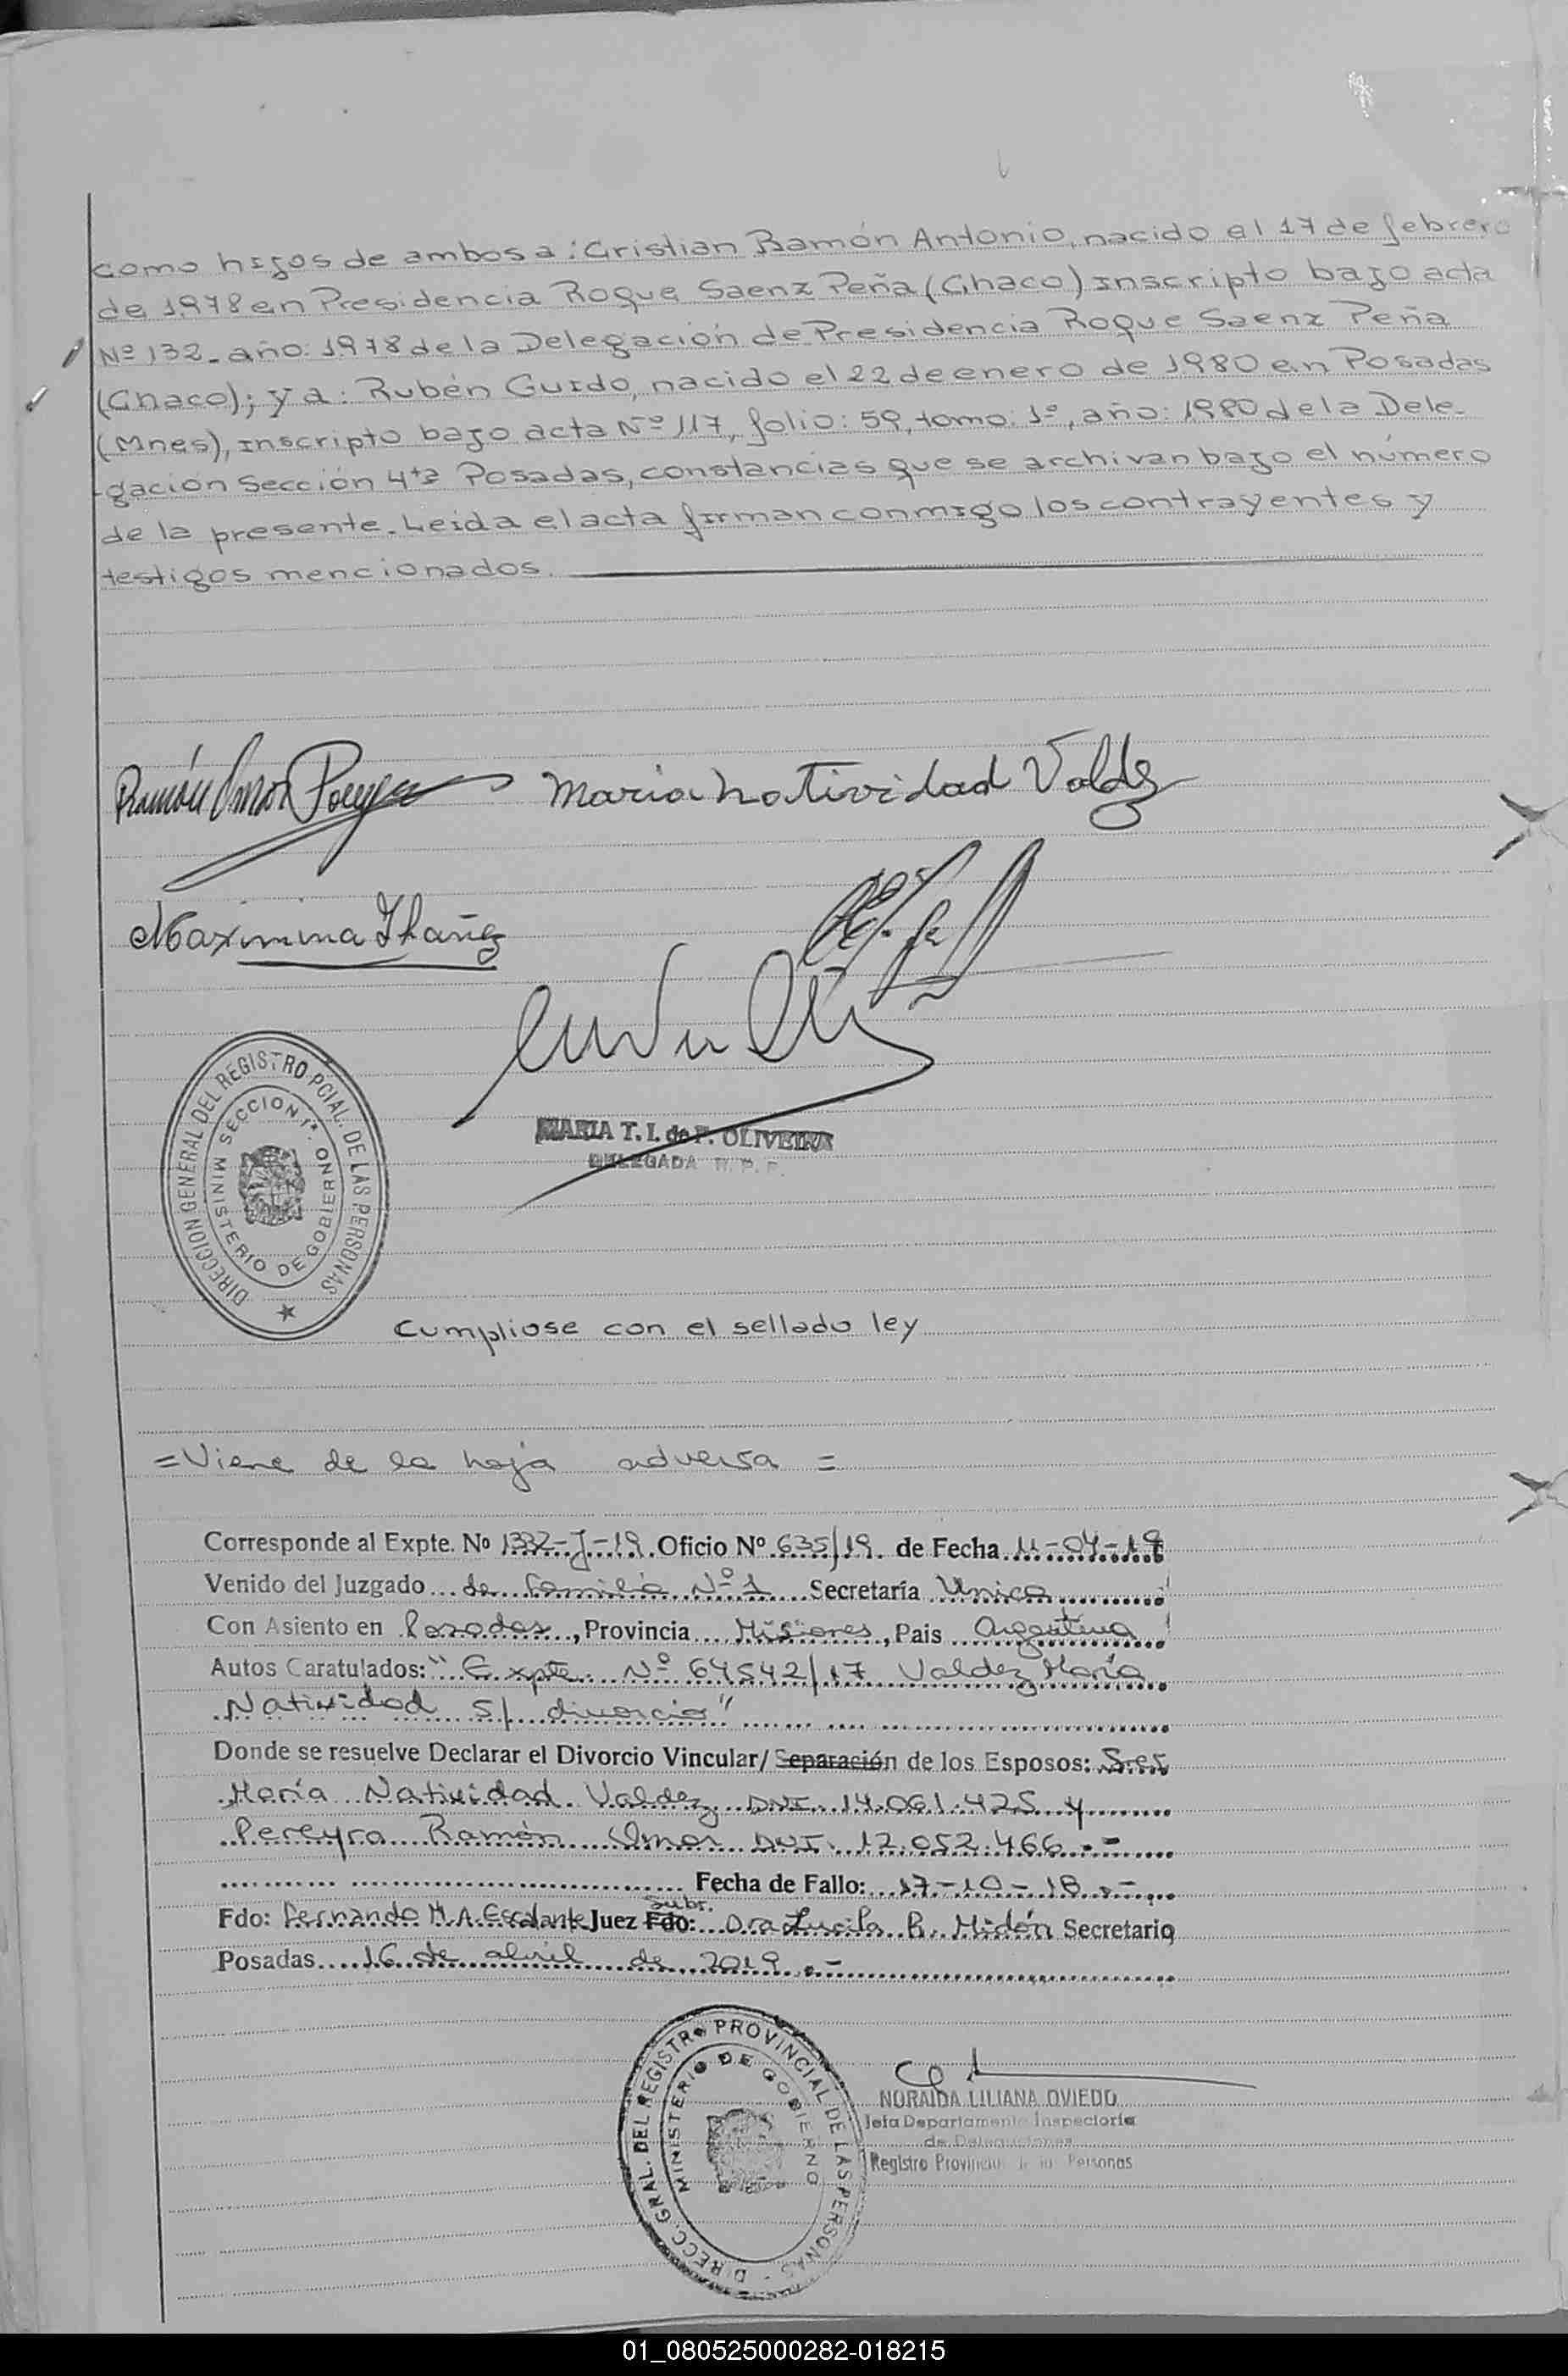 como hijos de ambos a: Cristian Ramón Antonio, nacido el 17 de febrero
de 1978 en Presidencia Roque Saenz Peña (Chaco) inscripto bajo acta
Nº 132_ año: 1978 de la Delegación de Presidencia Roque Saenz Peña
(Chaco); y a: Rubén Guido, nacido el 22 de enero de 1980 en Posadas
(Mnes), inscripto bajo acta Nº 117, folio: 59, tomo: 1º, año: 1980 de la Dele-
-gación Sección 4ta Posadas, constancias que se archivan bajo el número
de la presente. Leida el acta firman conmigo los contrayentes y
testigos mencionados.
Ramón Omar Pereyra Maria Natividad Valdez
Maximina Ibañez
DIRECCION GENERAL DEL REGISTRO PCIAL. DE LAS PERSONAS
SECCION 1ª. MINISTERIO DE GOBIERNO
MARIA T. I. de P. OLIVEIRA
DELEGADA R. P. P.
Cumpliose con el sellado ley
=Viene de la hoja adversa=
Corresponde al Expte. Nº 1332-J-19. Oficio Nº 635/19. de Fecha 11-04-19
Venido del Juzgado de Familia Nº 1 Secretaría Unica
Con Asiento en Posadas, Provincia Misiones, Pais Argentina
Autos Caratulados: "Expte. Nº 64542/17 Valdez María
Natividad s/ divorcio"
Donde se resuelve Declarar el Divorcio Vincular/Separación de los Esposos: Sres
María Natividad Valdez DNI. 14.061.425 y
Pereyra Ramón Omar DNI. 12.052.466.-
Fecha de Fallo: 17-10-18.-
Subr.
Fdo: Fernando M. A. Escalante Juez Fdo: Dra Lucila R. Midón Secretario
Posadas 16 de abril de 2019.-
DIRECC. GRAL. DEL REGISTRO PROVINCIAL DE LAS PERSONAS
MINISTERIO DE GOBIERNO
NORAIDA LILIANA OVIEDO
Jefa Departamento Inspectoría
de Delegaciones
Registro Provincial de las Personas
01_080525000282-018215